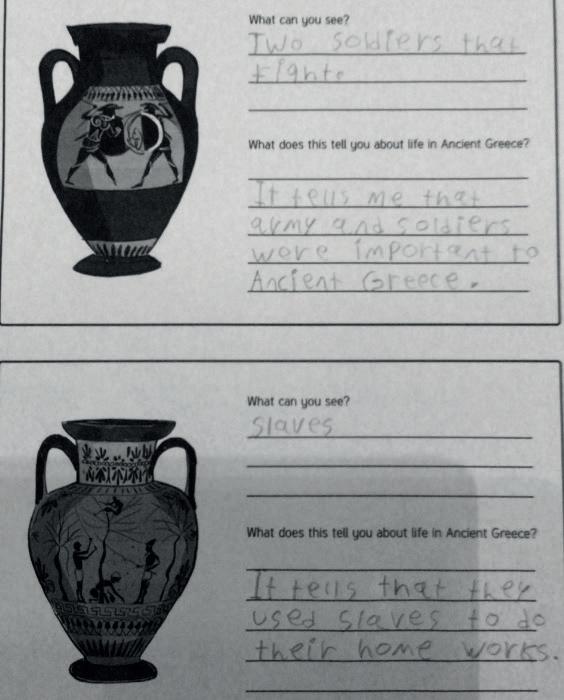 What can you see?
Two soldiers that
fight.
What does this tell you about life in Ancient Greece?
It tells me that
army and soldiers
were important to
Ancient Greece.
What can you see?
slaves
What does this tell you about life in Ancient Greece?
It tells that they
used slaves to do
their home works.